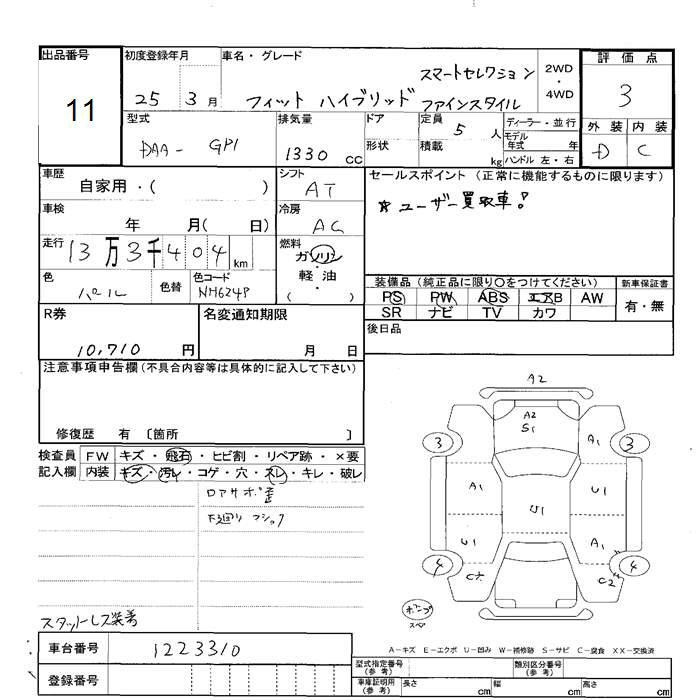 出品番号
11
初度登録年月
25 3 月
車名・グレード
フィット ハイブリッド
スマートセレクション
ファインスタイル
2WD
・
4WD
評価点
3
型式
DAA- GP1
排気量
1330 cc
ドア
形状
定員 5 人
積載 kg
ディーラー・並行
モデル年式 年
ハンドル 左・右
外装 内装
D C
車歴
自家用・( )
シフト
AT
セールスポイント (正常に機能するものに限ります)
☆ユーザー買取車!
車検
年 月( 日)
冷房
AC
走行
13万3千404 km
燃料
ガソリン
・
軽油
( )
色
パール
色替
色コード
NH624P
装備品 (純正品に限り○をつけてください)
PS PW ABS エアB AW
SR ナビ TV カワ
新車保証書
有・無
R券
10,710 円
名変通知期限
月 日
後日品
注意事項申告欄(不具合内容等は具体的に記入して下さい)
修復歴 有 〔箇所 〕
検査員
記入欄
FW キズ・飛石・ヒビ割・リペア跡・×要
内装 キズ・汚レ・コゲ・穴・スレ・キレ・破レ
ロアサポ歪
下廻り フショク
スタットレス装着
A2
A2
S1
3
A1
3
A1
U1
U1
U1
A1
4
C2
4
スペ
A-キズ E-エクボ U-凹み W-補修跡 S-サビ C-腐食 XX-交換済
車台番号
1223310
登録番号
型式指定番号
(参考)
類別区分番号
(参考)
車庫証明用
(参考)
長さ cm
幅 cm
高さ cm